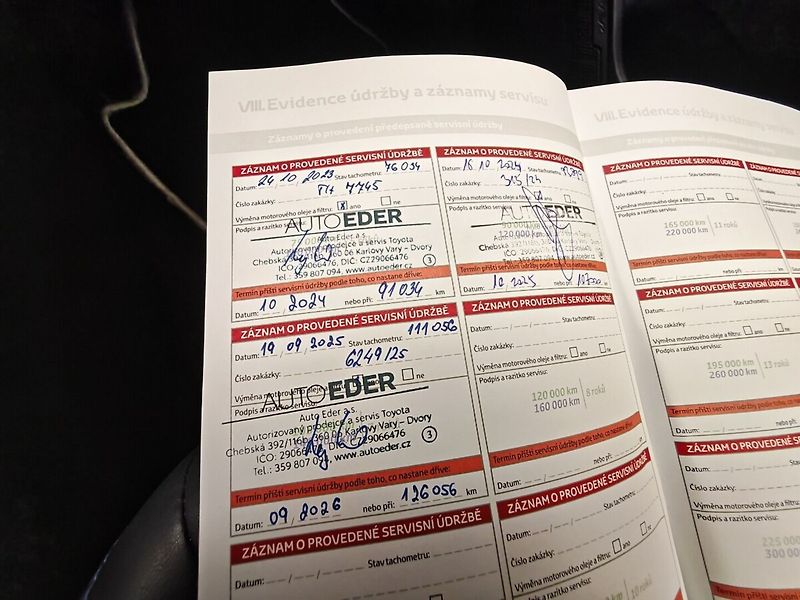 VIII. Evidence údržby a záznamy servisu
Záznamy o provedení předepsané servisní údržby
ZÁZNAM O PROVEDENÉ SERVISNÍ ÚDRŽBĚ
Datum: 24 10 2023 Stav tachometru: 76 034
Číslo zakázky: 7745
Výměna motorového oleje a filtru: x ano ne
Podpis a razítko servisu:
AUTO EDER
Auto Eder a.s.
Autorizovaný prodejce a servis Toyota
Chebská 392/116b, 360 06 Karlovy Vary – Dvory
IČO: 29066476, DIČ: CZ29066476
Tel.: 359 807 094, www.autoeder.cz 3
Termín příští servisní údržby podle toho, co nastane dříve:
Datum: 10 2024 nebo při: 91 034 km
ZÁZNAM O PROVEDENÉ SERVISNÍ ÚDRŽBĚ
Datum: 19 09 2025 Stav tachometru: 111 056
Číslo zakázky: 6249/25
Výměna motorového oleje a filtru: ano ne
Podpis a razítko servisu:
AUTO EDER
Auto Eder a.s.
Autorizovaný prodejce a servis Toyota
Chebská 392/116b, 360 06 Karlovy Vary – Dvory
IČO: 29066476, DIČ: CZ29066476
Tel.: 359 807 094, www.autoeder.cz 3
Termín příští servisní údržby podle toho, co nastane dříve:
Datum: 09 2026 nebo při: 126 056 km
ZÁZNAM O PROVEDENÉ SERVISNÍ ÚDRŽBĚ
Datum: Stav tachometru: km
ZÁZNAM O PROVEDENÉ SERVISNÍ ÚDRŽBĚ
Datum: 16 10 2024 Stav tachometru:
Číslo zakázky: /24
Výměna motorového oleje a filtru: ano ne
Podpis a razítko
AUTO EDER
120 000
Chebská
IČO:
Tel.: 3
Termín příští servisní údržby podle toho, co nastane dříve:
Datum: 10 2025 nebo při: km
ZÁZNAM O PROVEDENÉ SERVISNÍ ÚDRŽBĚ
Datum: Stav tachometru:
Číslo zakázky:
Výměna motorového oleje a filtru: ano ne
Podpis a razítko servisu:
120 000 km
160 000 km 8 roků
Termín příští servisní údržby podle toho, co nastane dříve:
Datum: nebo při: km
ZÁZNAM O PROVEDENÉ SERVISNÍ ÚDRŽBĚ
Datum: Stav tachometru:
Číslo zakázky:
Výměna motorového oleje a filtru: ano ne
Podpis a razítko servisu:
10 roků
VIII. Evidence údržby a záznamy
Záznamy o provedení předepsané servisní údržby
ZÁZNAM O PROVEDENÉ SERVISNÍ ÚDRŽBĚ
Datum: Stav tachometru:
Číslo zakázky:
Výměna motorového oleje a filtru: ano ne
Podpis a razítko servisu:
165 000 km
220 000 km 11 roků
Termín příští servisní údržby podle toho, co nastane dříve:
Datum: nebo při: km
ZÁZNAM O PROVEDENÉ SERVISNÍ ÚDRŽBĚ
Datum: Stav tachometru:
Číslo zakázky:
Výměna motorového oleje a filtru: ano ne
Podpis a razítko servisu:
195 000 km
260 000 km 13 roků
Termín příští servisní údržby podle toho, co nastane
Datum: nebo při:
ZÁZNAM O PROVEDENÉ SERVISNÍ
Datum: Stav tachometru:
Číslo zakázky:
Výměna motorového oleje a filtru:
Podpis a razítko servisu:
225 000
300 000